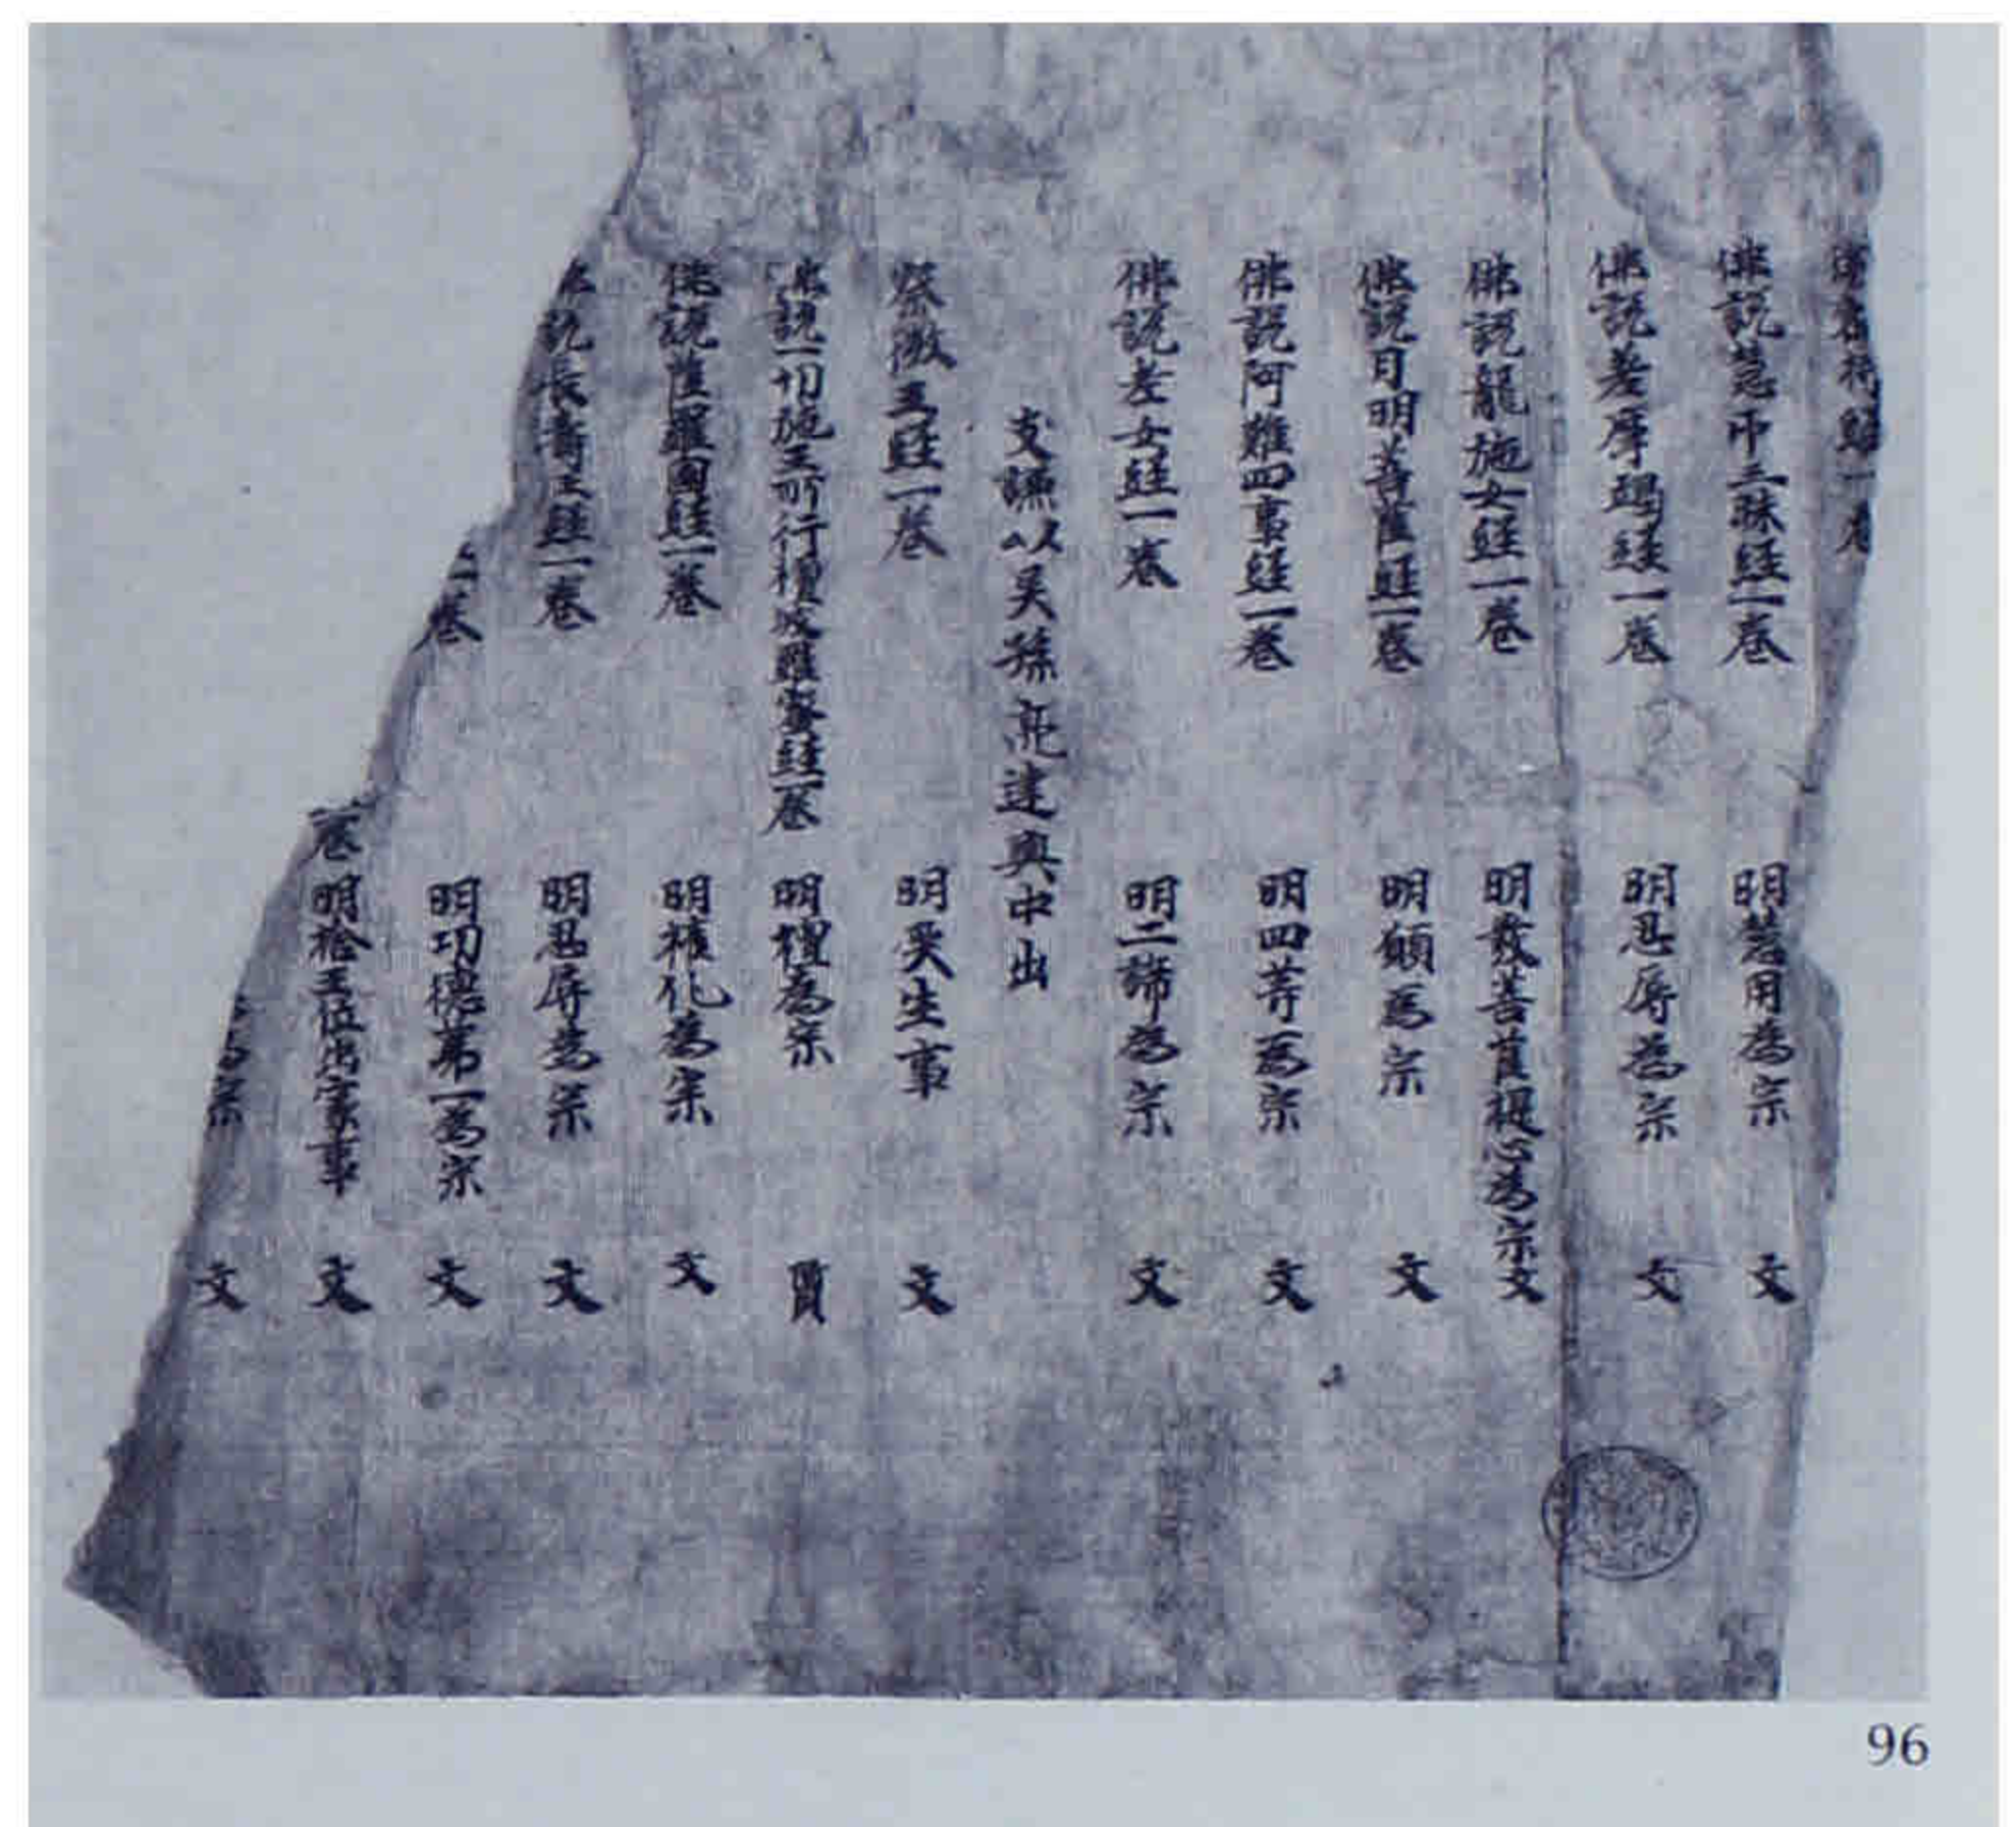 經一卷
佛說慧印三昧經一卷 明慧用為宗 文
佛說差摩竭經一卷 明忍辱為宗 文
佛說龍施女經一卷 明發菩提心為宗 文
佛說月明菩薩經一卷 明願為宗 文
佛說阿難四事經一卷 明四等為宗 文
佛說差女經一卷 明二諦為宗 文
支謙以吳孫亮建興中出
察微王經一卷 明受生事 文
佛說一切施王所行檀波羅蜜經一卷 明檀為宗 賢
佛說薩羅國經一卷 明權化為宗 文
說長壽王經一卷 明忍辱為宗 文
一卷 明功德第一為宗 文
卷 明捨王位出家事 文
為宗 文
96